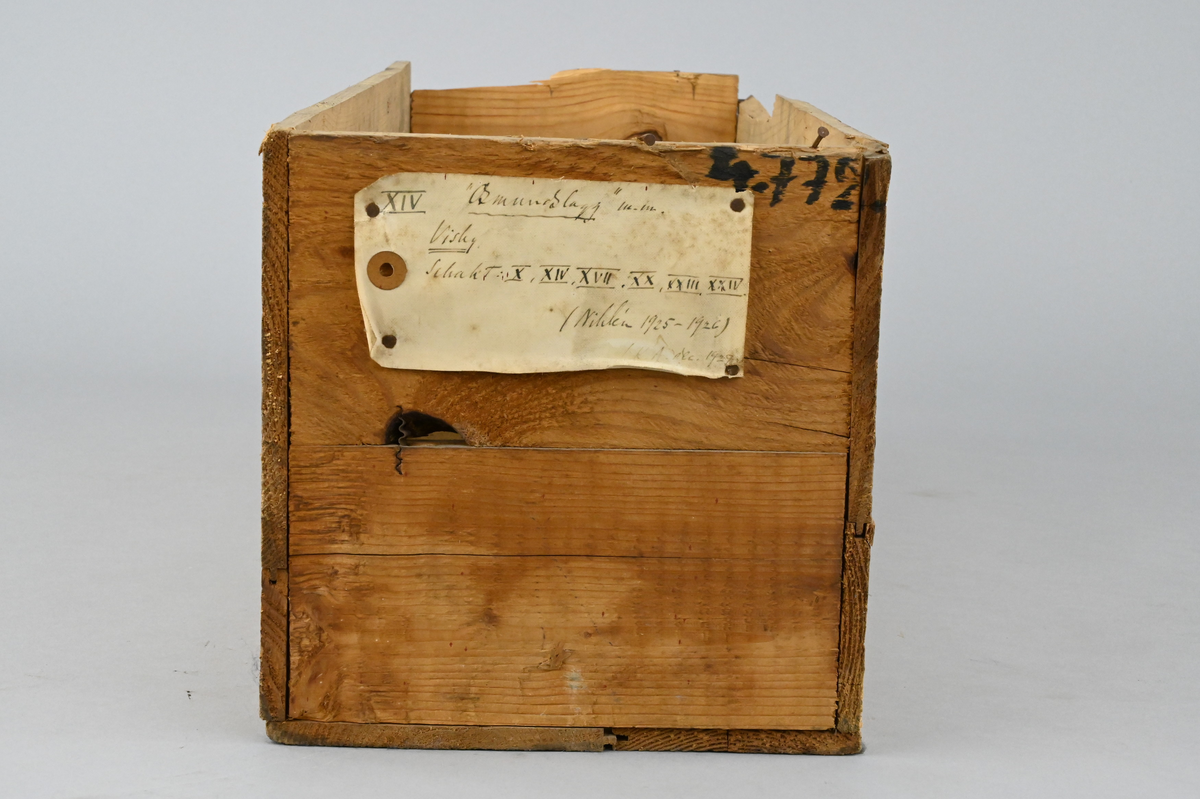 4772.
XIV "Osmundslagg" m.m.
Visby.
Schakt: X, XIV, XVII, XX, XXIII, XXIV.
(Nihlén 1925-1926)